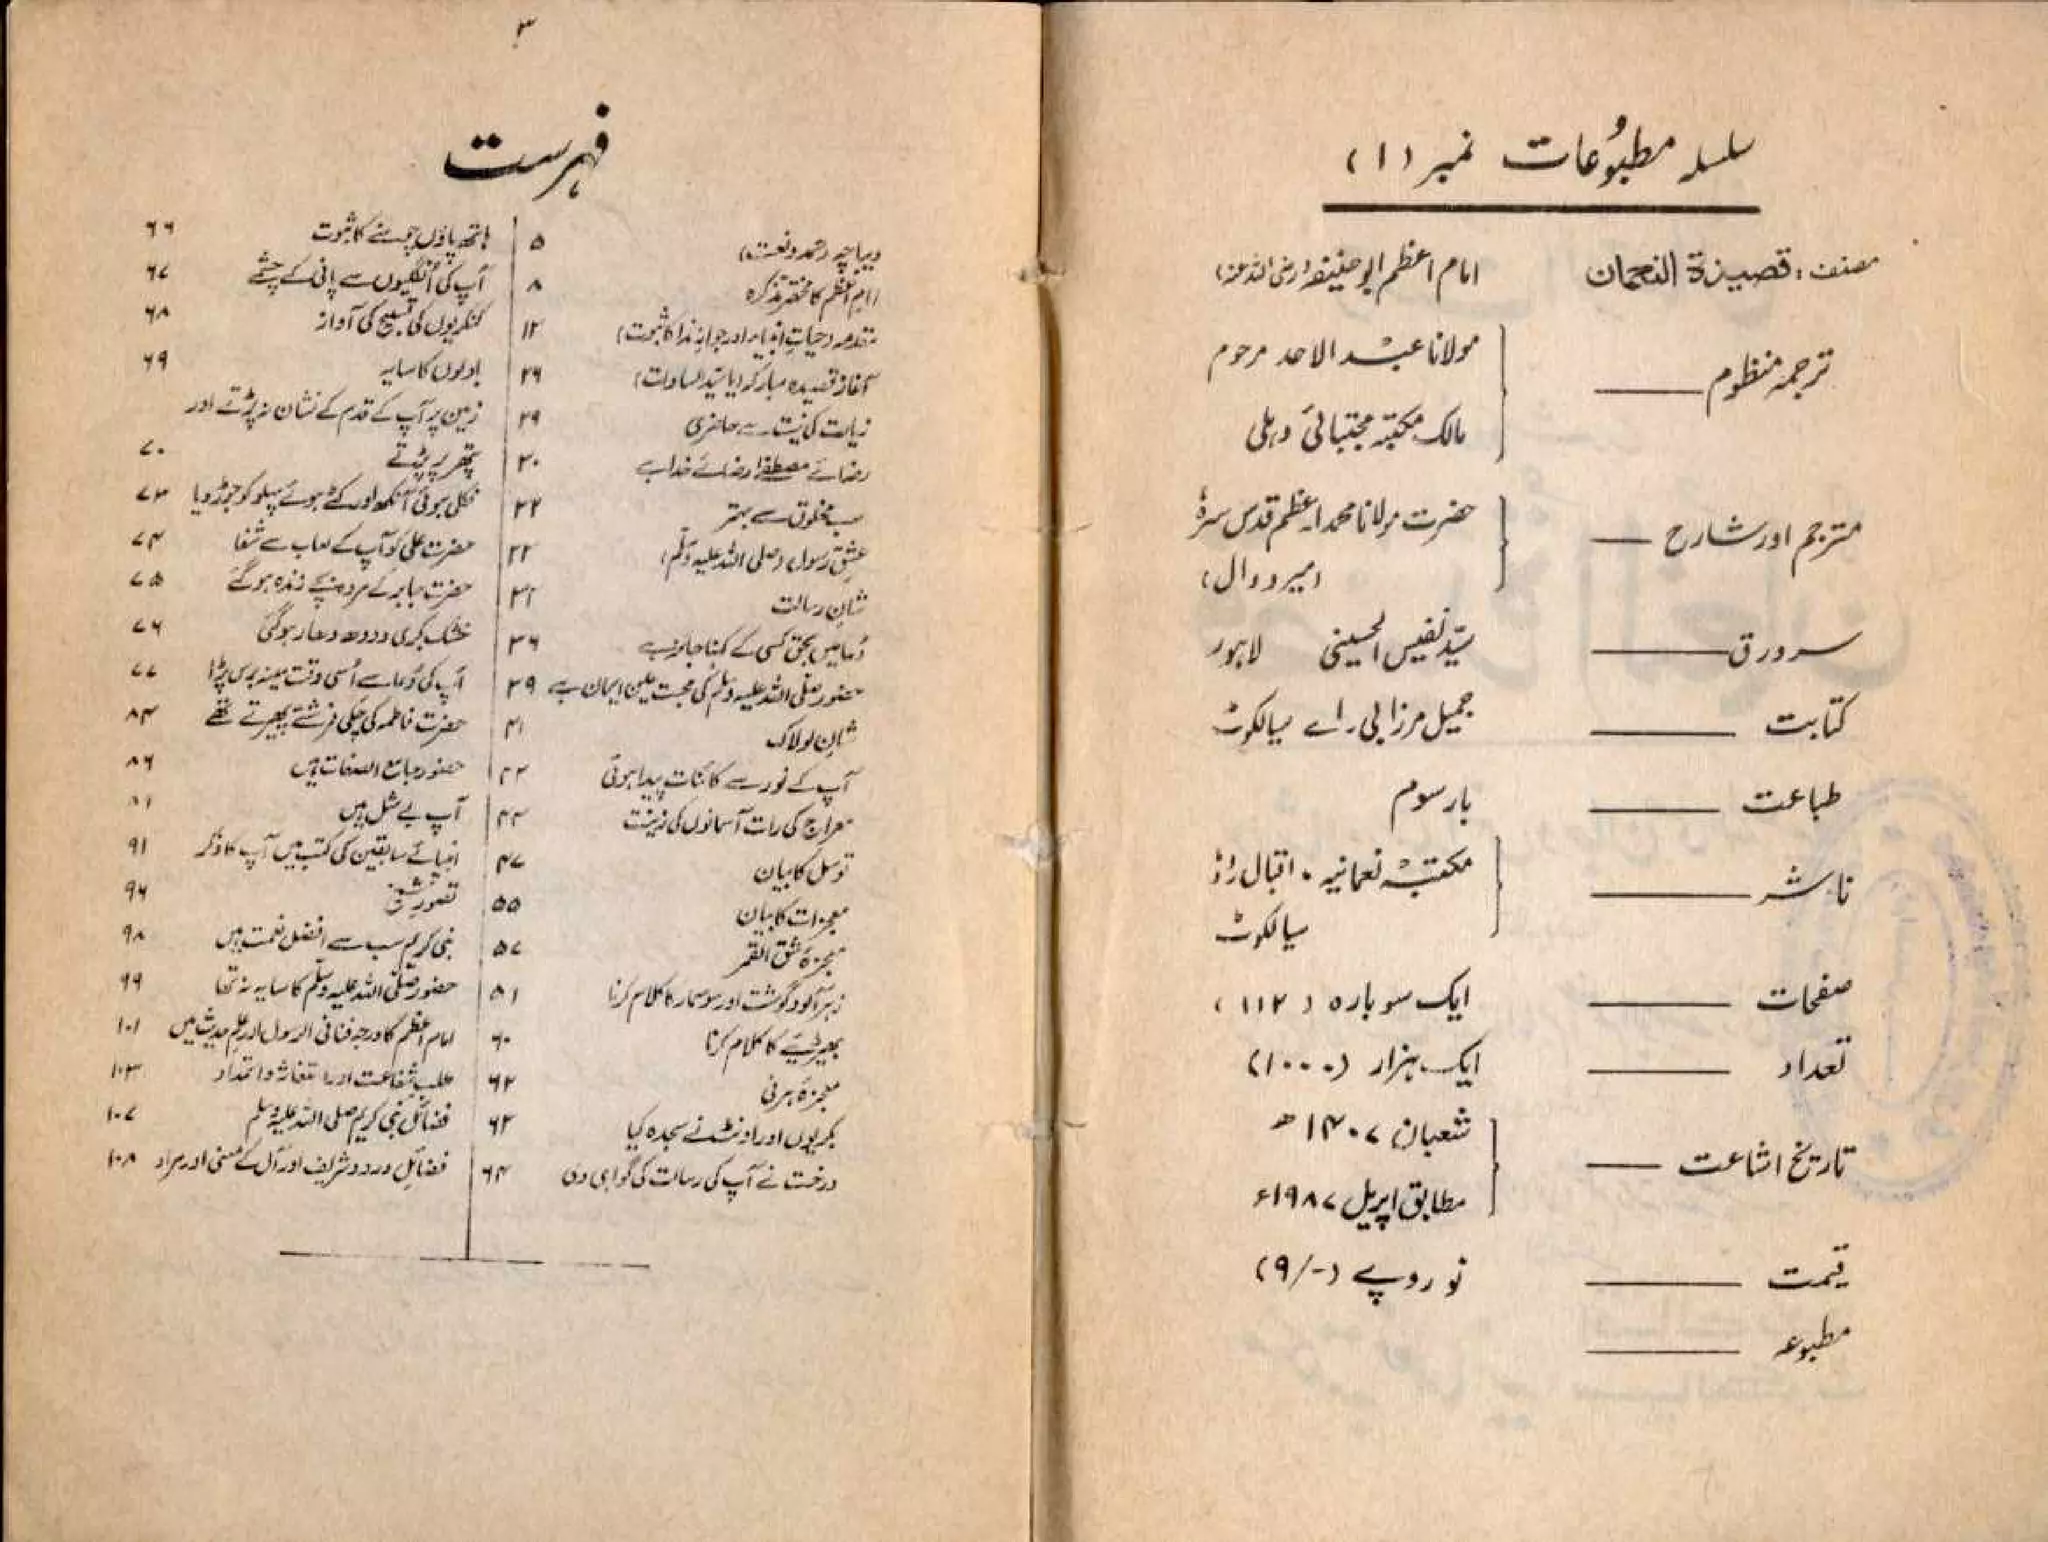 سلسلہ مطبوُعات نمبر (۱)
مصنف: قصیدۃ النعمان امام اعظم ابوحنیفہ (رضی اللہ عنہ)
ترجمہ منظوم مولانا عبد الاحد مرحوم
مالک مکتبہ مجتبائی دہلی
مترجم اور شارح حضرت مولانا محمد اعظم قدس سرہٗ
(میرووال)
سرورق سیّد نفیس الحسینی لاہور
کتابت جمیل مرزا بی اے سیالکوٹ
طباعت بار سوم
ناشر مکتبہ نعمانیہ . اقبال راڈ
سیالکوٹ
صفحات ایک سو بارہ (۱۱۲)
تعداد ایک ہزار (۱۰۰۰)
تاریخ اشاعت شعبان ۱۴۰۷ھ
مطابق اپریل ۱۹۸۷ء
قیمت نو روپے (-/۹)
مطبوعہ
۳
فہرست
دیباچہ (حمد و نعت) ۵
امام اعظم کا مختصر تذکرہ ۸
مقدمہ (حیاتِ انبیاء اور جوازِ ندا کا ثبوت) ۱۲
آغاز قصیدہ مبارکہ (یا سیّد السادات) ۲۶
زیارت کی نیت سے حاضری ۲۹
رضائے مصطفےٰ رضائے خدا ہے ۳۰
سب مخلوق سے بہتر ۳۲
عشقِ رسول (صلی اللہ علیہ وسلم) ۳۳
شانِ رسالت ۳۴
دُعا میں بحق کسی کے کہنا جائز ہے ۳۶
حضور صلی اللہ علیہ وسلم کی محبت عین ایمان ہے ۳۹
شانِ لولاک ۴۱
آپ کے نور سے کائنات پیدا ہوئی ۴۲
معراج کی رات آسمانوں کی زینت ۴۴
توسل کا بیان ۴۷
معجزات کا بیان ۵۵
معجزہ شق القمر ۵۷
زہر آلود گوشت اور سوسمار کا کلام کرنا ۵۸
بھیڑیئے کا کلام کرنا ۶۰
معجزہ ہرنی ۶۲
بکریوں اور اونٹ نے سجدہ کیا ۶۳
درخت نے آپ کی رسالت کی گواہی دی ۶۴
ہاتھ پاؤں چومنے کا ثبوت ۶۶
آپ کی انگلیوں سے پانی کے چشمے ۶۷
کنکریوں کی تسبیح کی آواز ۶۸
بادلوں کا سایہ ۶۹
زمین پر آپ کے قدم کے نشان نہ پڑتے اور
پتھر پر پڑتے ۷۰
نکلی ہوئی آنکھ اور کٹے ہوئے پہلو کو جوڑ دیا ۷۳
حضرت علی کو آپ کے لعاب سے شفا ۷۴
حضرت جابر کے مردہ بچے زندہ ہوگئے ۷۵
خشک بکری دودھ دھار ہوگئی ۷۶
آپ کی دُعا سے اُسی وقت مینہ برس پڑا ۷۷
حضرت فاطمہ کی چکی فرشتے پھیرتے تھے ۸۴
حضور جامع الصفات ہیں ۸۶
آپ بے مثل ہیں ۸۱
انبیائے سابقین کی کتب میں آپ کا ذکر ۹۱
تصورِ شیخ ۹۶
نبی کریم سب سے افضل نعمت ہیں ۹۸
حضور صلی اللہ علیہ وسلم کا سایہ نہ تھا ۹۹
امام اعظم کا درجہ فنا فی الرسول اور علم حدیث میں ۱۰۱
طلبِ شفاعت اور استغاثہ و استمداد ۱۰۳
فضائل نبی کریم صلی اللہ علیہ وسلم ۱۰۷
فضائلِ درود شریف اور آل کے معنی اور مراد ۱۰۸